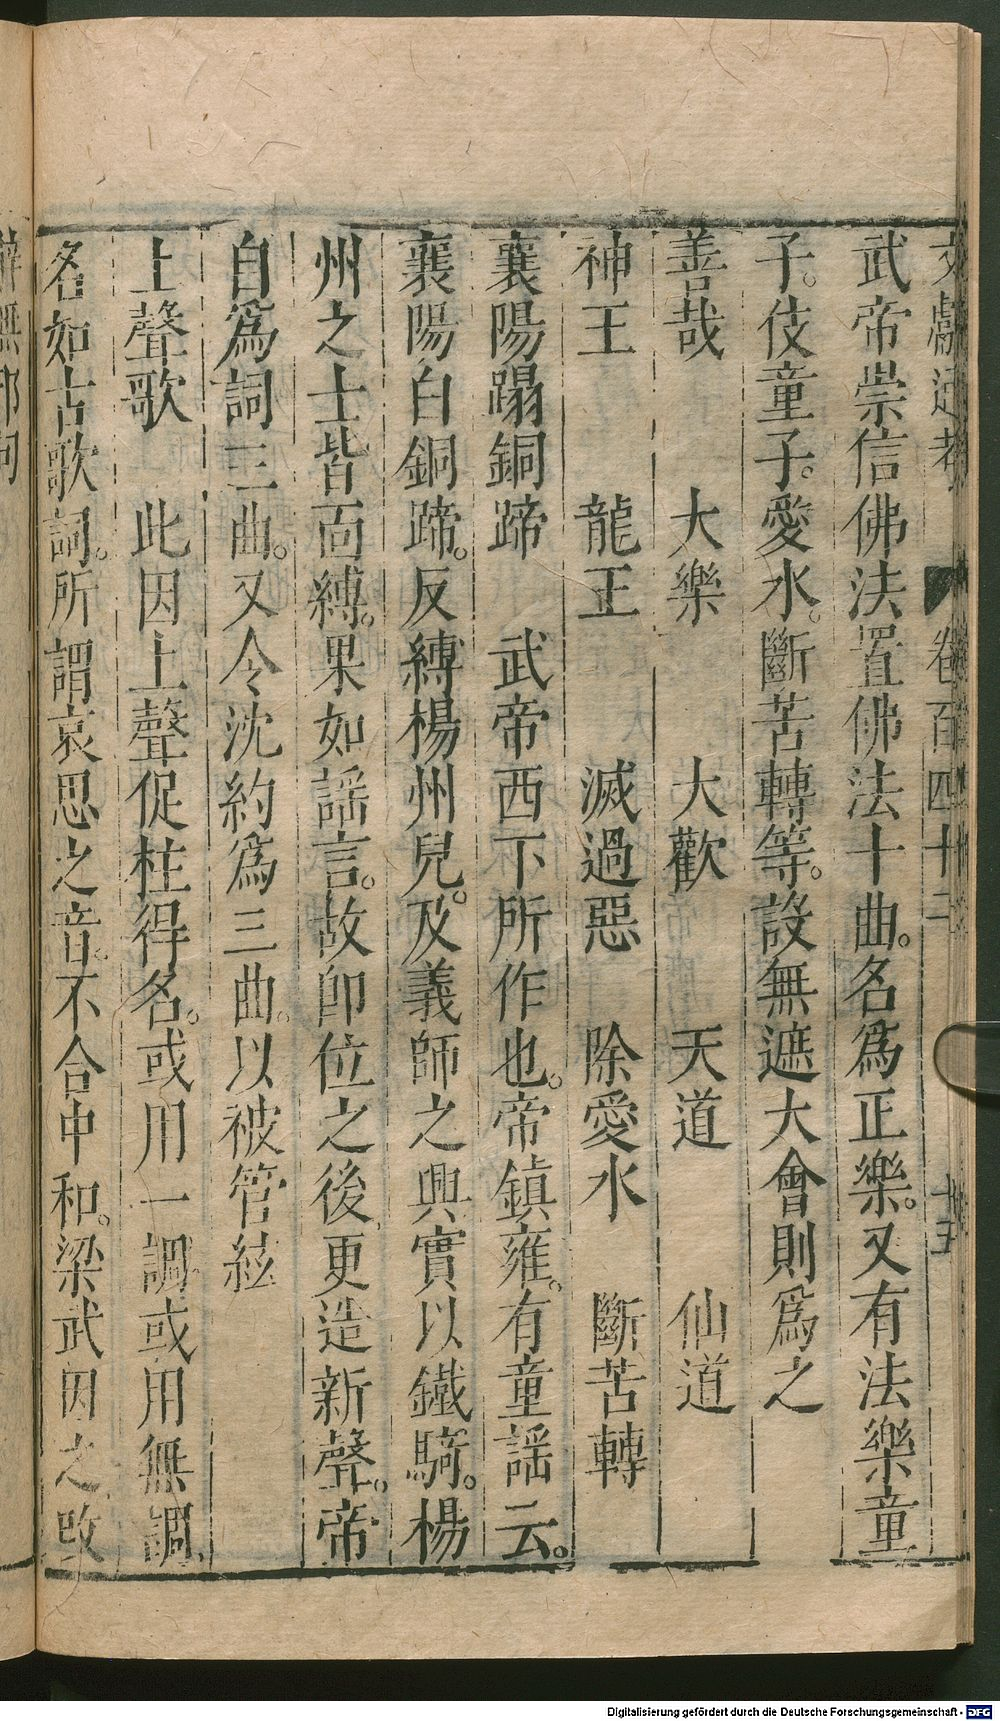 文獻通考 卷百四十二 十五
武帝崇信佛法置佛法十曲。名爲正樂。又有法樂童
子。伎童子。愛水。斷苦轉等。設無遮大會則爲之
善哉 大樂 大歡 天道 仙道
神王 龍王 滅過惡 除愛水 斷苦轉
襄陽蹋銅蹄 武帝西下所作也。帝鎮雍。有童謡云。
襄陽白銅蹄。反縛楊州兒。及義師之興實以鐵騎。楊
州之士皆靣縛。果如謡言。故卽位之後更造新聲。帝
自爲詞三曲。又令沈約爲三曲。以被管絃
上聲歌 此因上聲促柱得名。或用一調或用無調
名如古歌詞。所謂哀思之音。不合中和。梁武因之改
辭無邪句
Digitalisierung gefördert durch die Deutsche Forschungsgemeinschaft - DFG